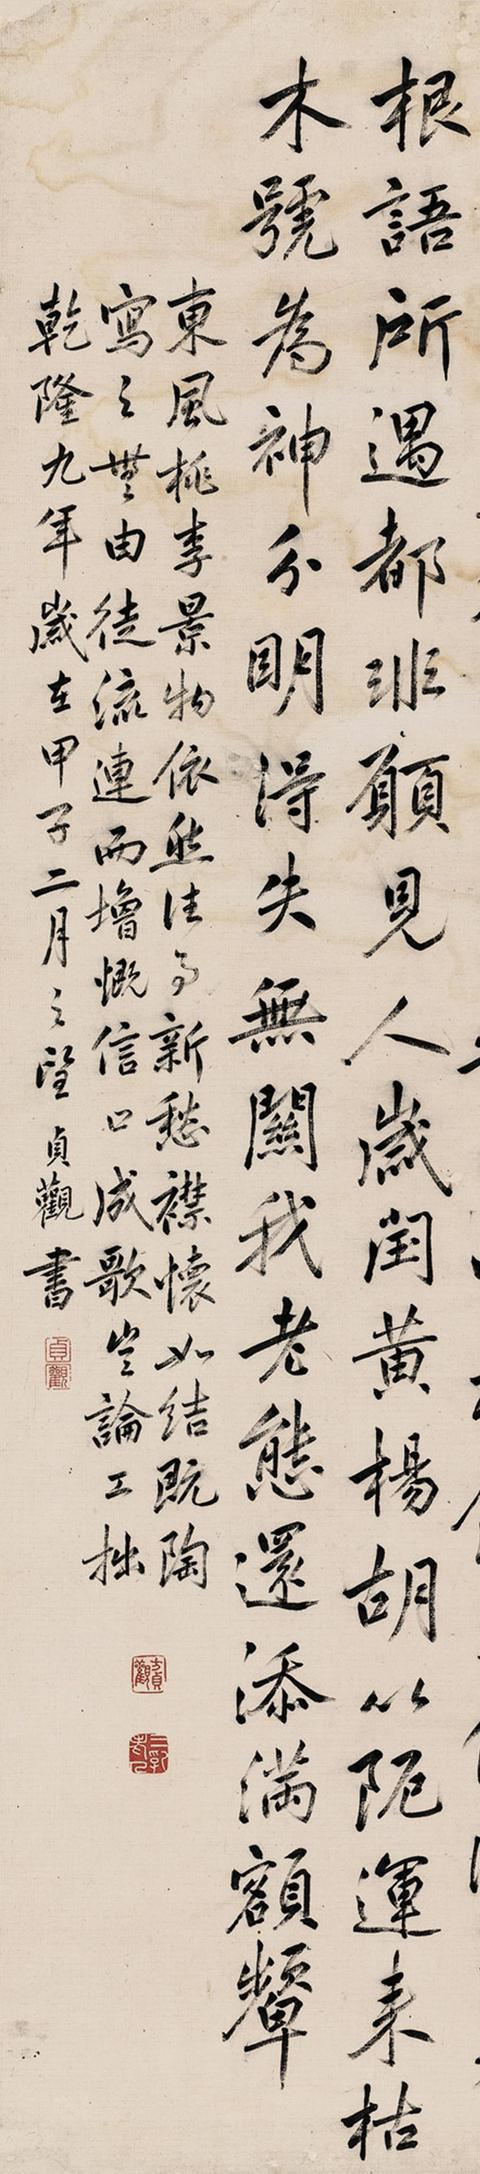 根語所遇都非願見人歲閏黃楊胡以阨運来枯
木號為神分明得失無關我老態還添滿額顰
東風桃李景物依然往事新愁襟懷如結既陶
寫之無由徒流連而增慨信口成歌豈論工拙
乾隆九年歲在甲子二月之望貞觀書
貞觀
貞觀